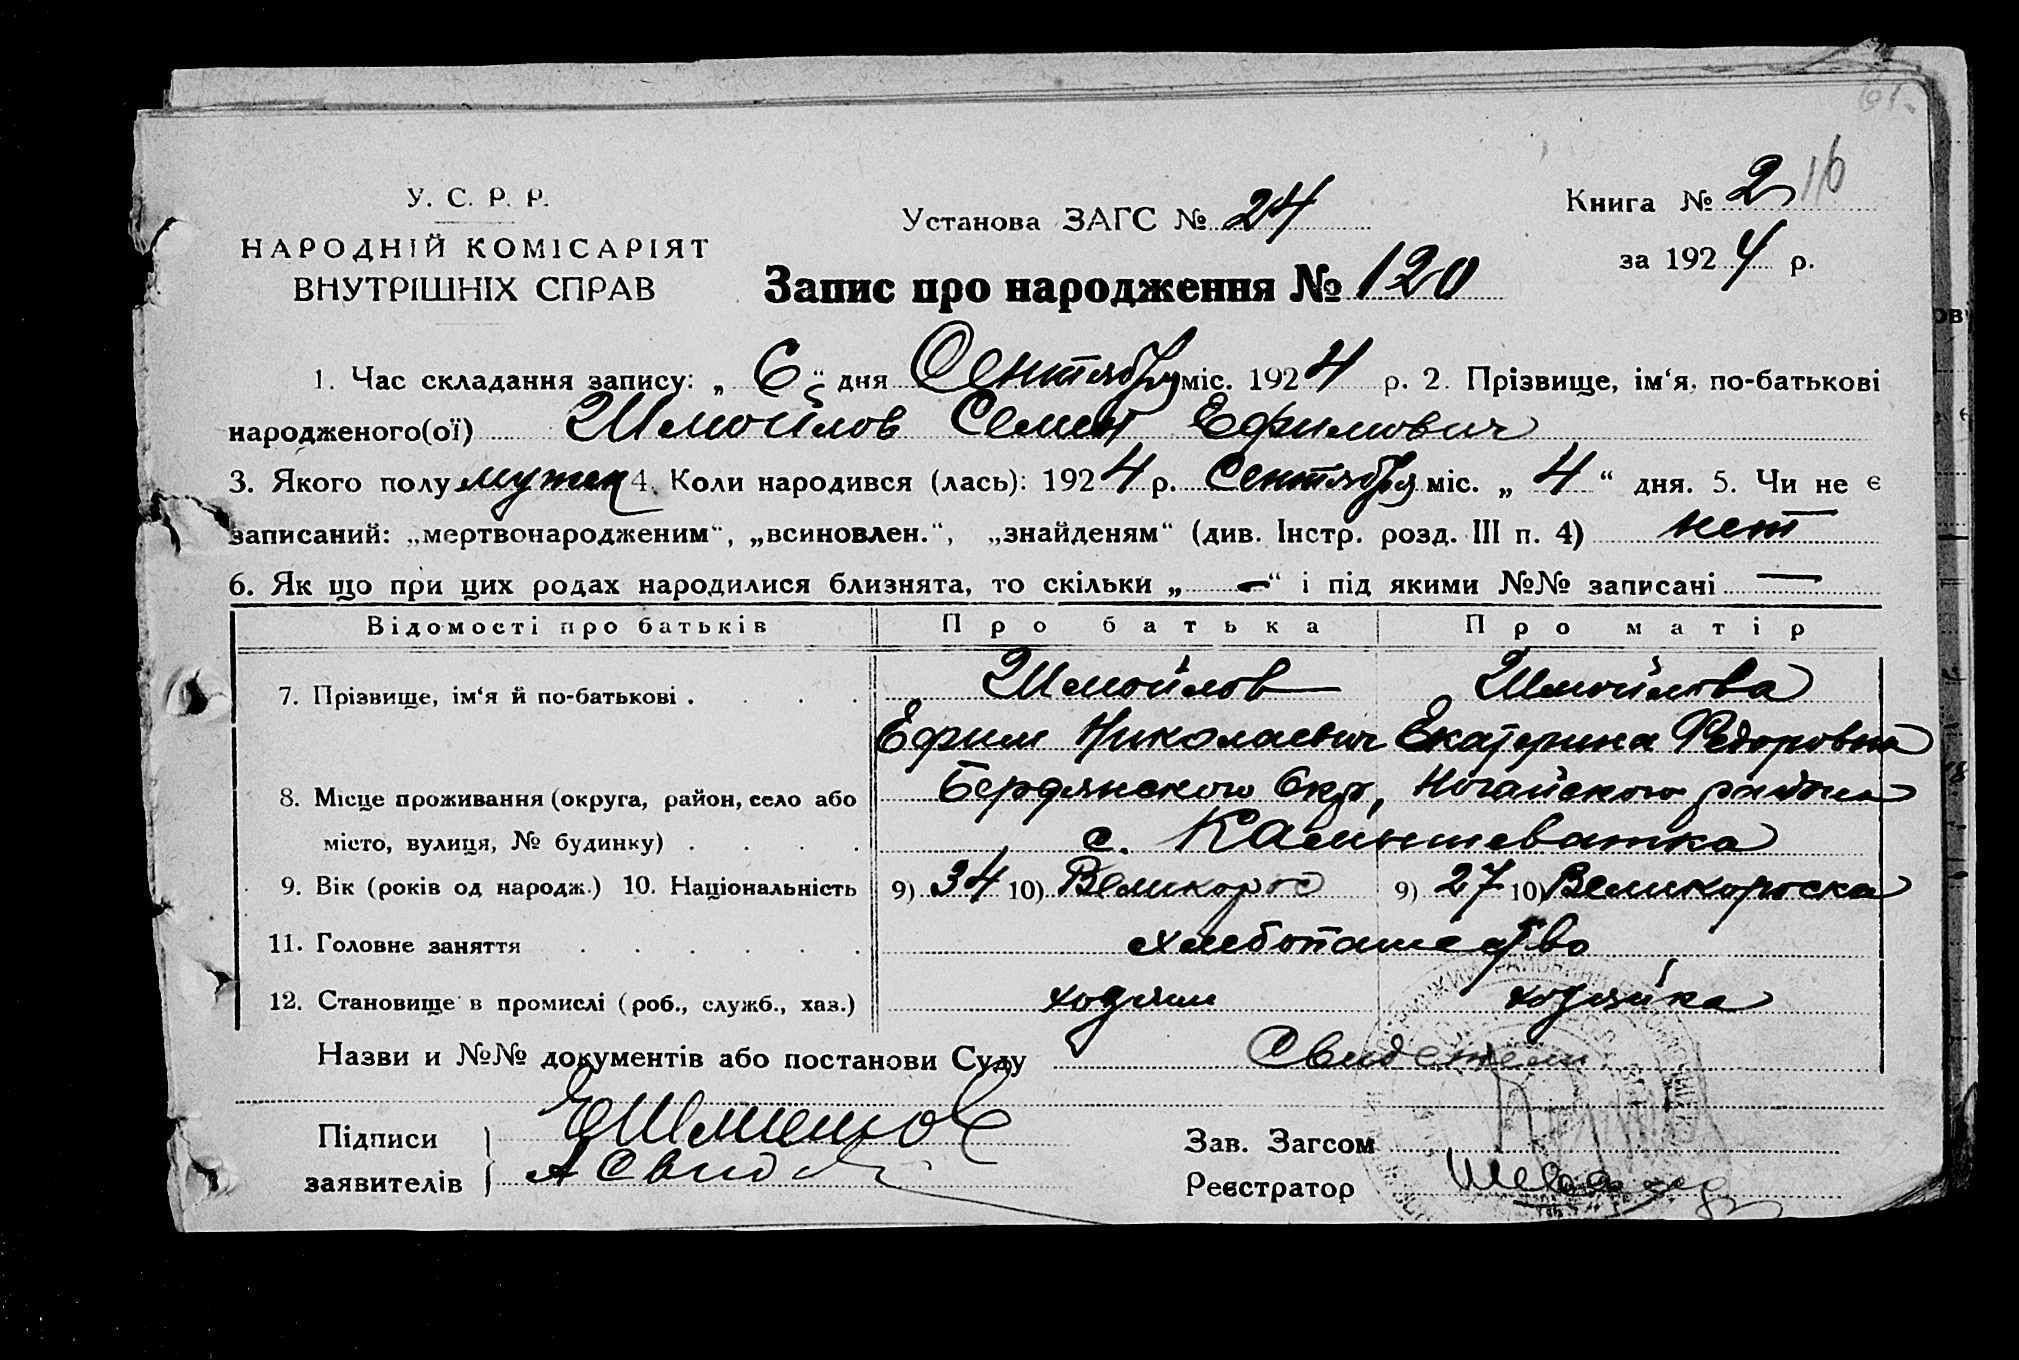 91.
16
У. С. Р. Р.
НАРОДНІЙ КОМІСАРІЯТ
ВНУТРІШНІХ СПРАВ
Установа ЗАГС № 24
Книга № 2
за 1924 р.
Запис про народження № 120
1. Час складання запису: „6“ дня Сентября міс. 1924 р. 2. Прізвище, ім‘я, по-батькові
народженого(ої) Шмойлов Семен Ефимович
3. Якого полу мужск 4. Коли народився (лась): 1924 р. Сентября міс. „4“ дня. 5. Чи не є
записаний: „мертвонародженим“, „всиновлен.“, „знайденям“ (див. Інстр. розд. III п. 4) нет
6. Як що при цих родах народилися близнята, то скільки „—“ і під якими №№ записані —
Відомості про батьків Про батька Про матір
7. Прізвище, ім‘я й по-батькові . . . . Шмойлов Шмойлова
Ефим Николаевич Екатерина Федоровна
8. Місце проживання (округа, район, село або Бердянского Окр, Ногайского района
місто, вулиця, № будинку) . . . . с. Камышеватка
9. Вік (років од народж.) 10. Національність 9) 34 10) Великорос 9) 27 10) Великороска
11. Головне заняття . . . . . . хлебопашество
12. Становище в промислі (роб., служб., хаз.) хозяин хозяйка
Назви и №№ документів або постанови Суду Свидетели
Підписи
заявителів
ЕШмойлов
Зав. Загсом
Реєстратор